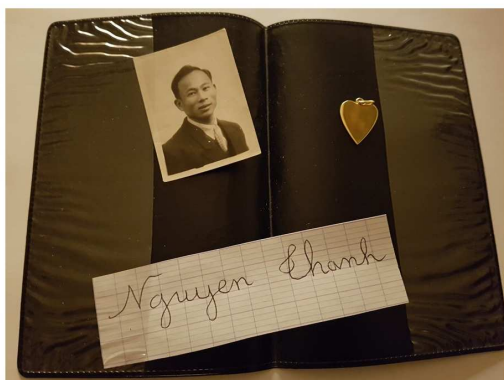 Nguyen Thanh